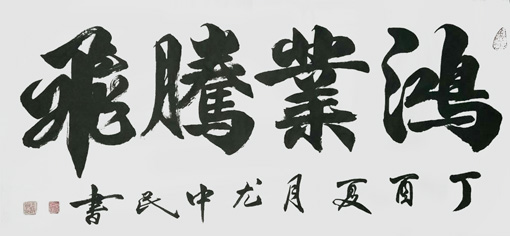 鴻業騰飛
丁酉夏月龙中民書